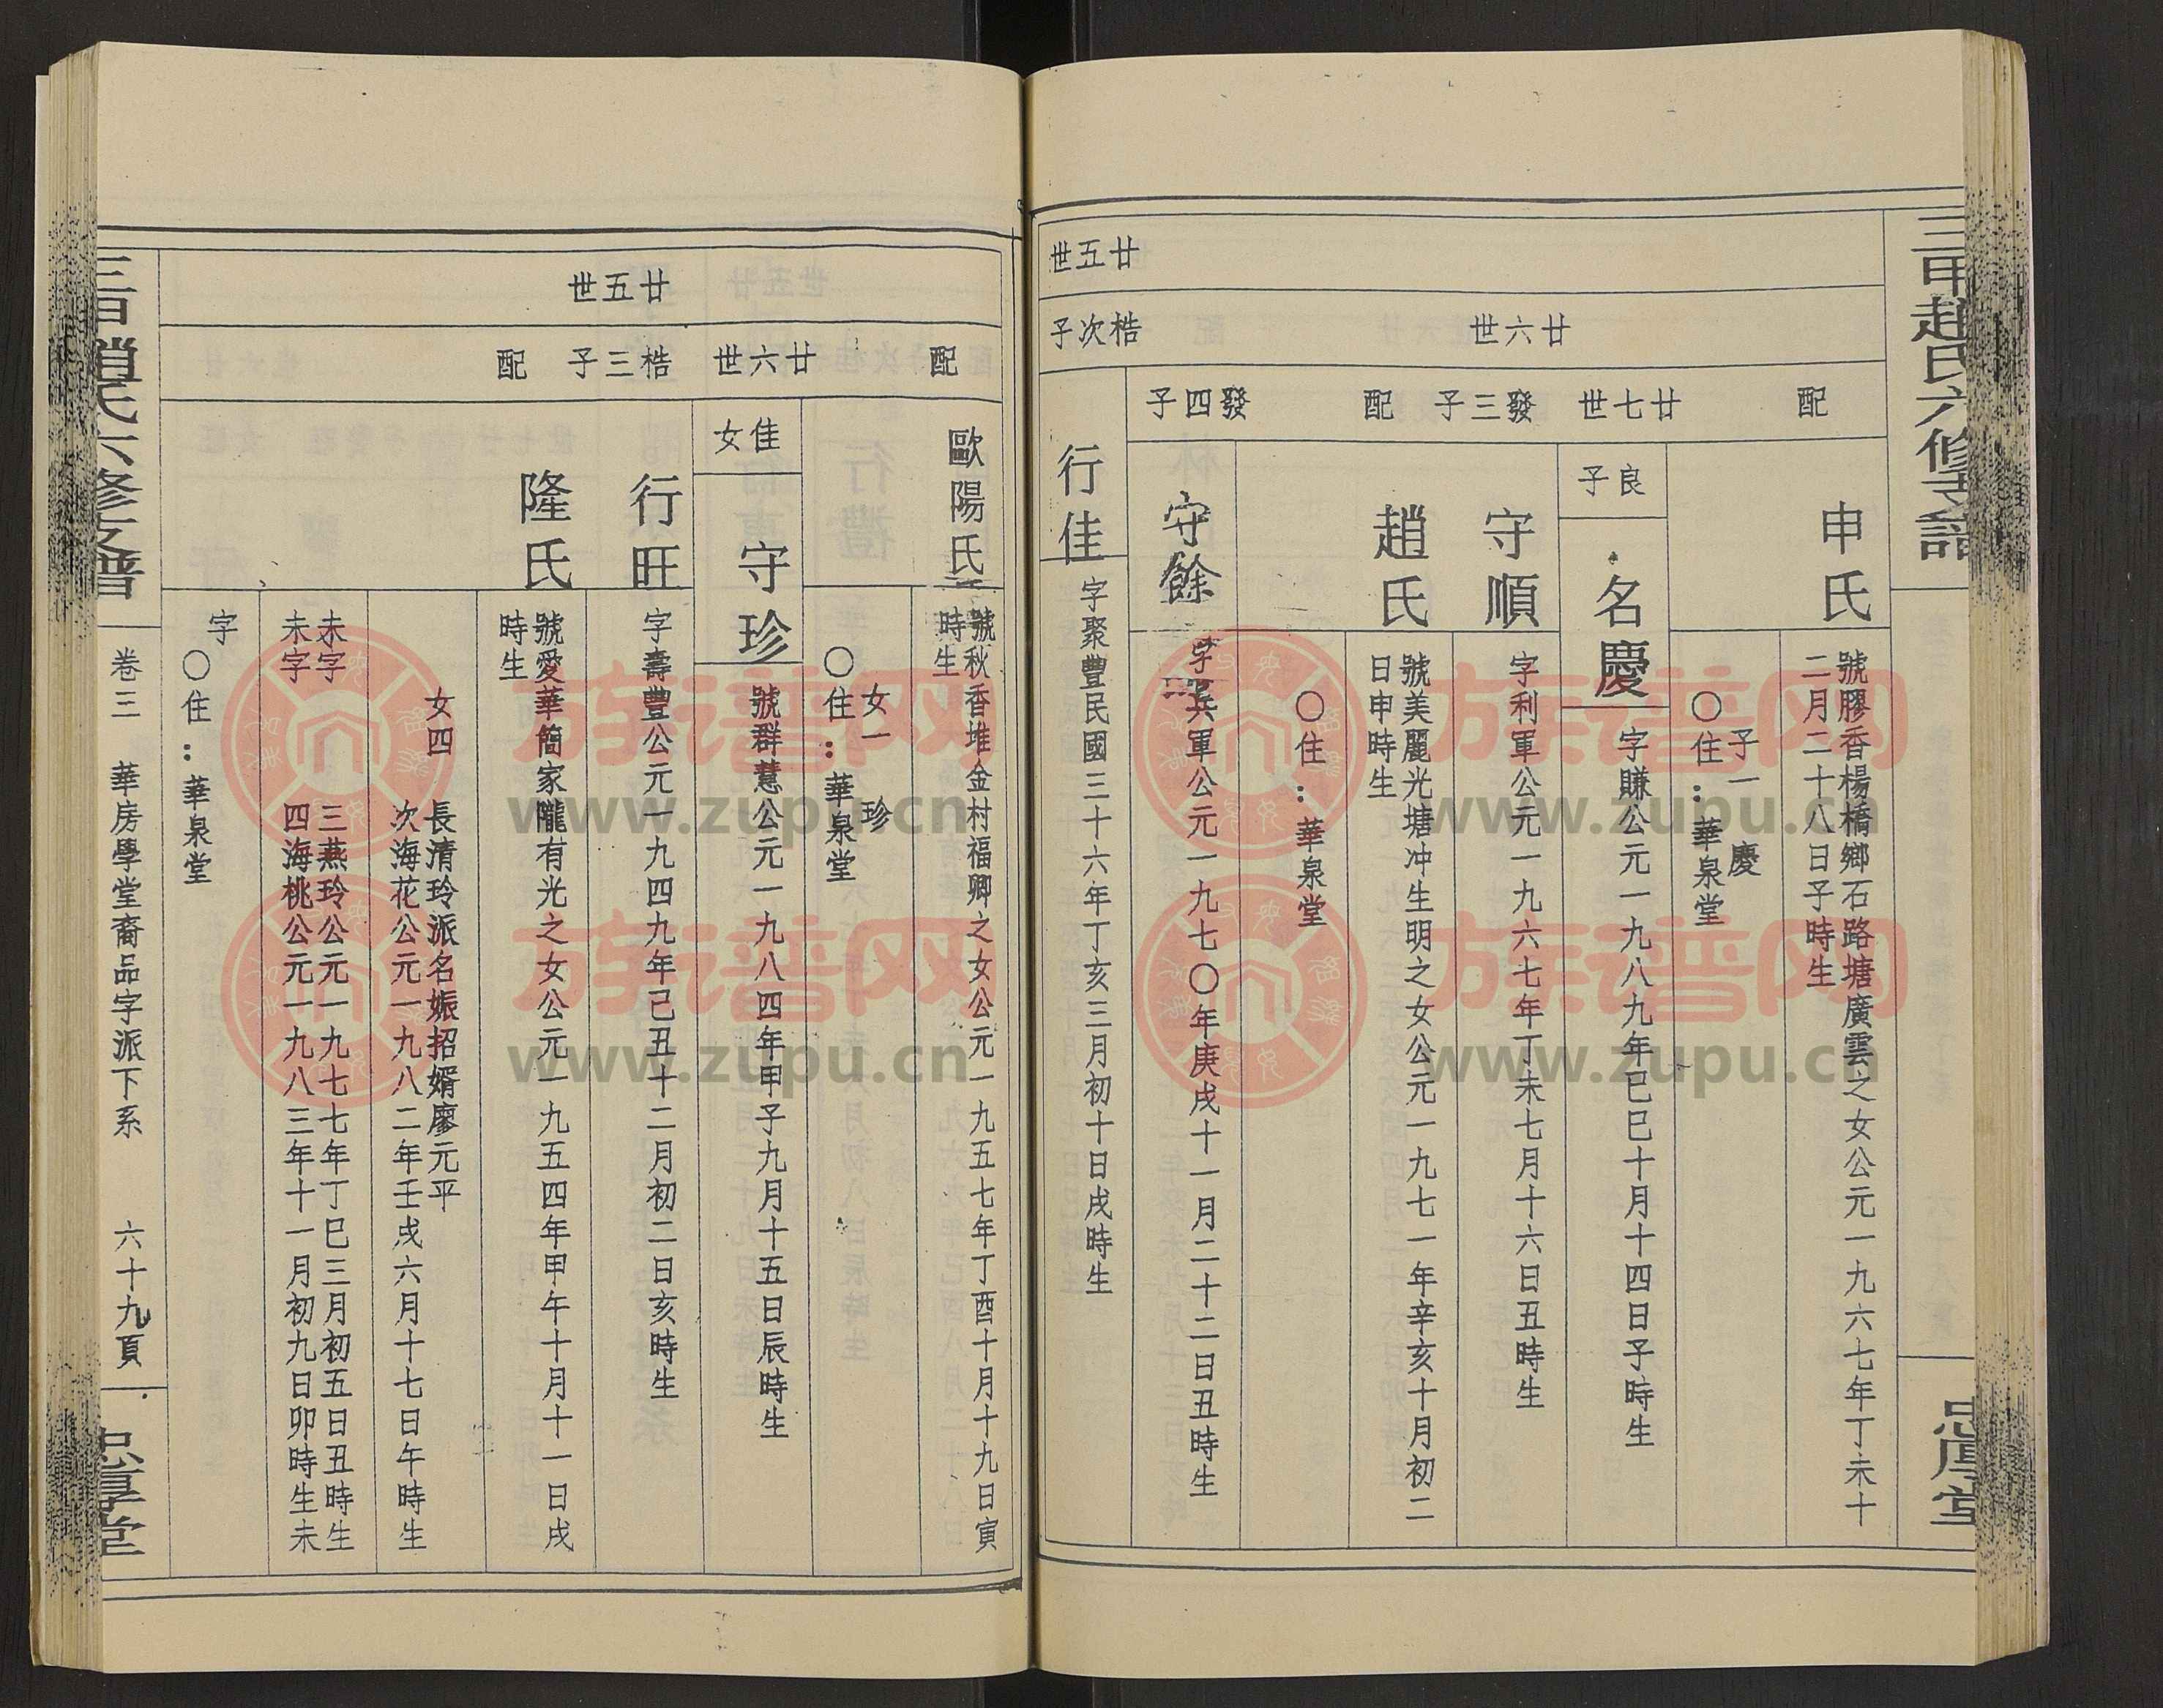 三甲趙氏六修支譜
忠厚堂
廿五世
廿六世
梏次子
配
廿七世
發三子
配
發四子
申氏
號膠香楊橋鄉石路塘廣雲之女公元一九六七年丁未十
二月二十八日子時生
子一 慶
〇住:華泉堂
良子
名慶
字賺公元一九八九年巳巳十月十四日子時生
守順
字利軍公元一九六七年丁未七月十六日丑時生
趙氏
號美麗光塘冲生明之女公元一九七一年辛亥十月初二
日申時生
〇住:華泉堂
守餘
字 兵軍公元一九七〇年庚戌十一月二十二日丑時生
行佳
字聚豐民國三十六年丁亥三月初十日戌時生
廿五世
配
廿六世
梏三子
配
歐陽氏
號秋香堆金村福卿之女公元一九五七年丁酉十月十九日寅
時生
女一 珍
〇住:華泉堂
佳女
守珍
號群慧公元一九八四年甲子九月十五日辰時生
行旺
字壽豐公元一九四九年己丑十二月初二日亥時生
隆氏
號愛華簡家隴有光之女公元一九五四年甲午十月十一日戌
時生
女四
長清玲派名娠招婿廖元平
次海花公元一九八二年壬戌六月十七日午時生
未字
三燕玲公元一九七七年丁巳三月初五日丑時生
未字
四海桃公元一九八三年十一月初九日卯時生未
字
〇住:華泉堂
三甲趙氏六修支譜
卷三 華房學堂裔品字派下系 六十九頁
忠厚堂
族谱网
www.zupu.cn
族谱网
www.zupu.cn
族谱网
www.zupu.cn
族谱网
www.zupu.cn